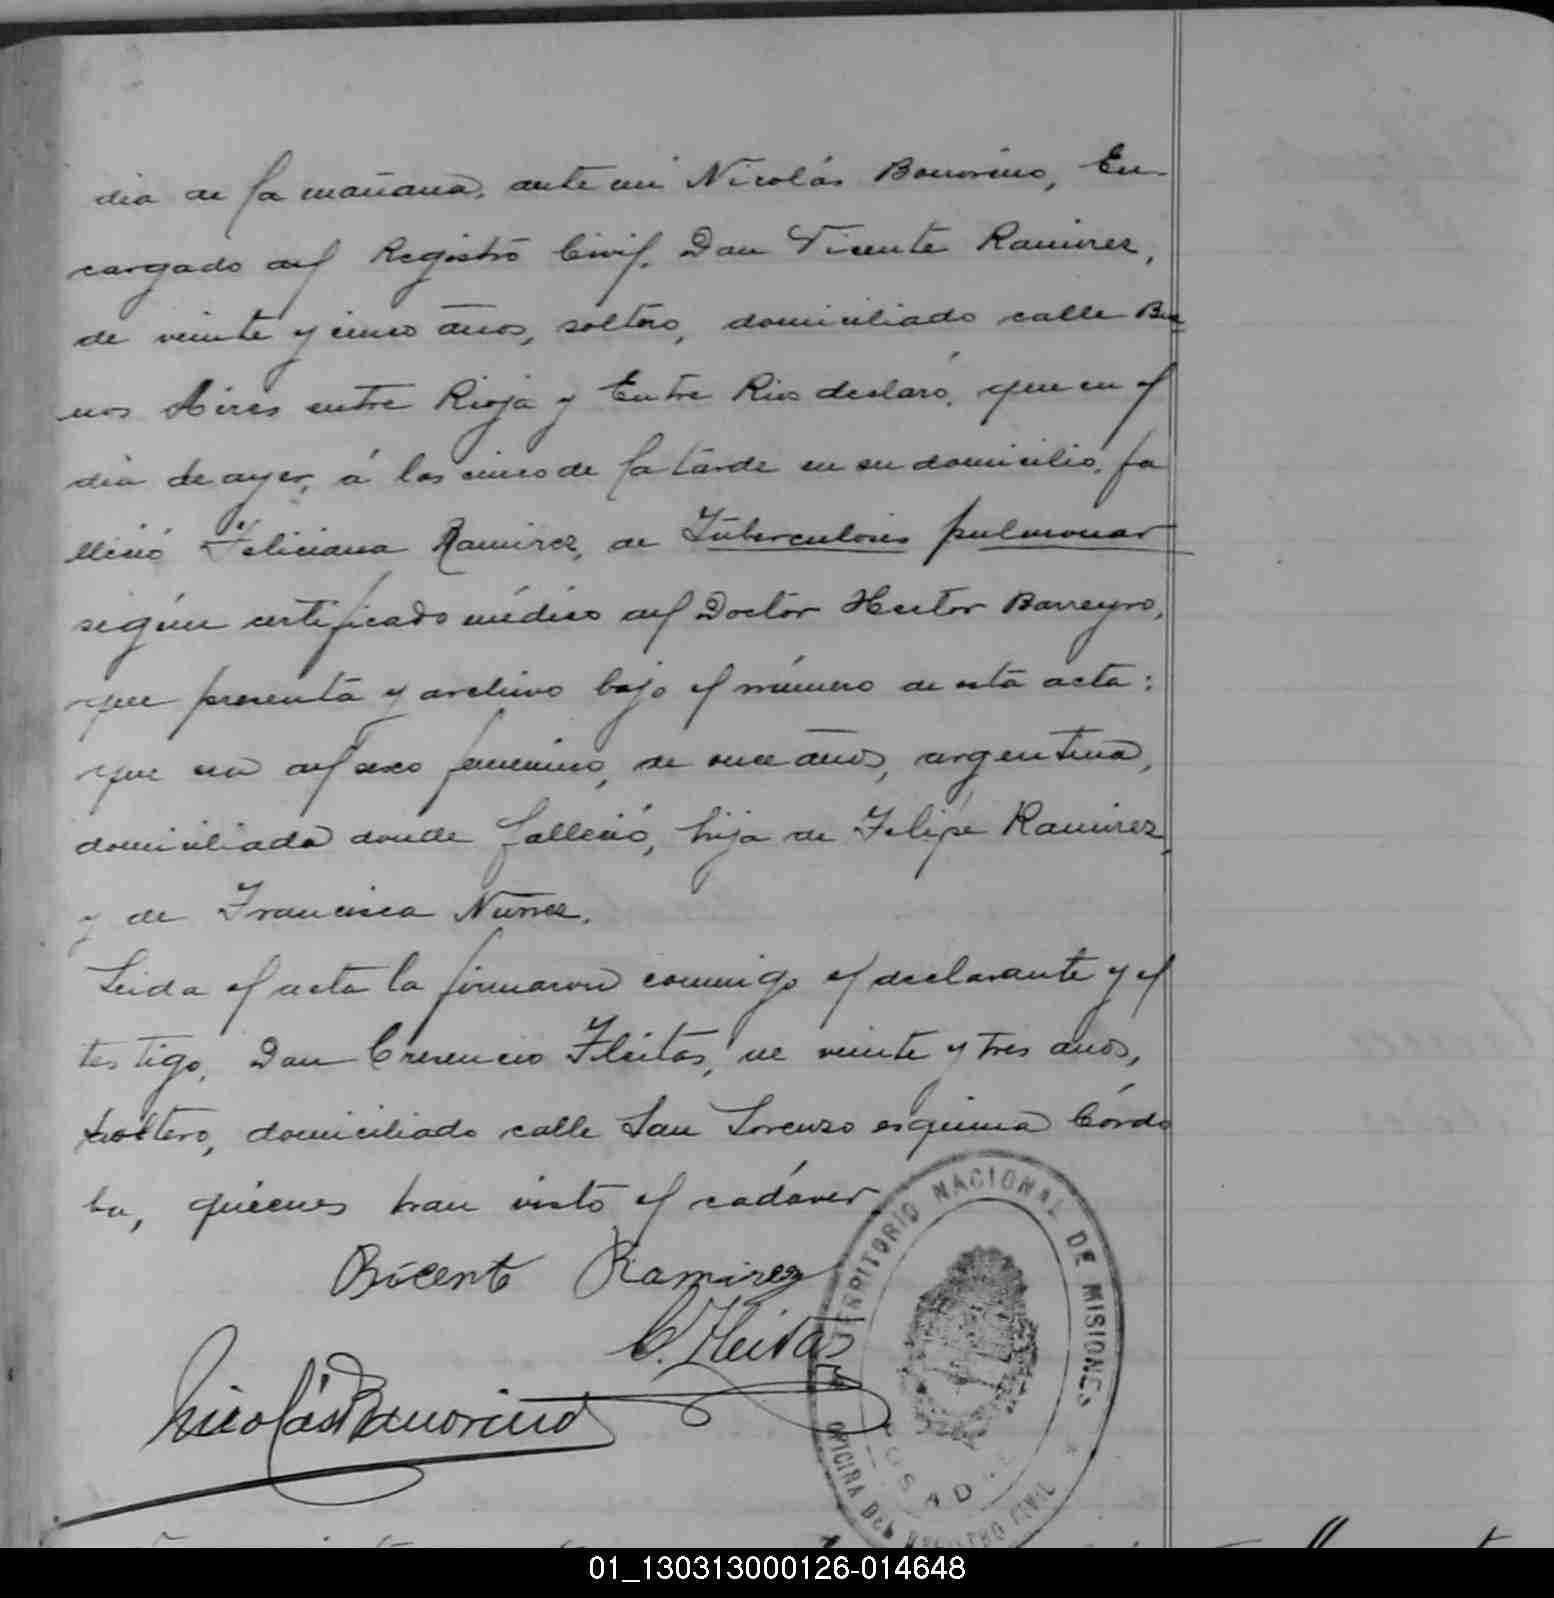 dia de la mañana, ante mi Nicolás Bonorino, En-
cargado del Registro Civil, Don Vicente Ramirez,
de veinte y cinco años, soltero, domiciliado calle Bue
nos Aires entre Rioja y Entre Rios declaró, que en el
dia de ayer, á las cinco de la tarde en su domicilio, fa
lleció Feliciana Ramirez, de Tuberculosis pulmonar
según certificado médico del Doctor Hector Barreyro,
que presenta y archivo bajo el número de esta acta:
que era del sexo femenino, de once años, argentina,
domiciliada donde falleció, hija de Felipe Ramirez
y de Francisca Nuñez.
Leida el acta la firmaron conmigo el declarante y el
testigo, Don Cresencio Fleitas, de veinte y tres años,
soltero, domiciliado calle San Lorenzo esquina Córdo
ba, quienes han visto el cadáver
Bicente Ramirez
C. Fleitas
Nicolás Bonorino
TERRITORIO NACIONAL DE MISIONES
POSADAS
OFICINA DEL REGISTRO CIVIL
01_130313000126-014648